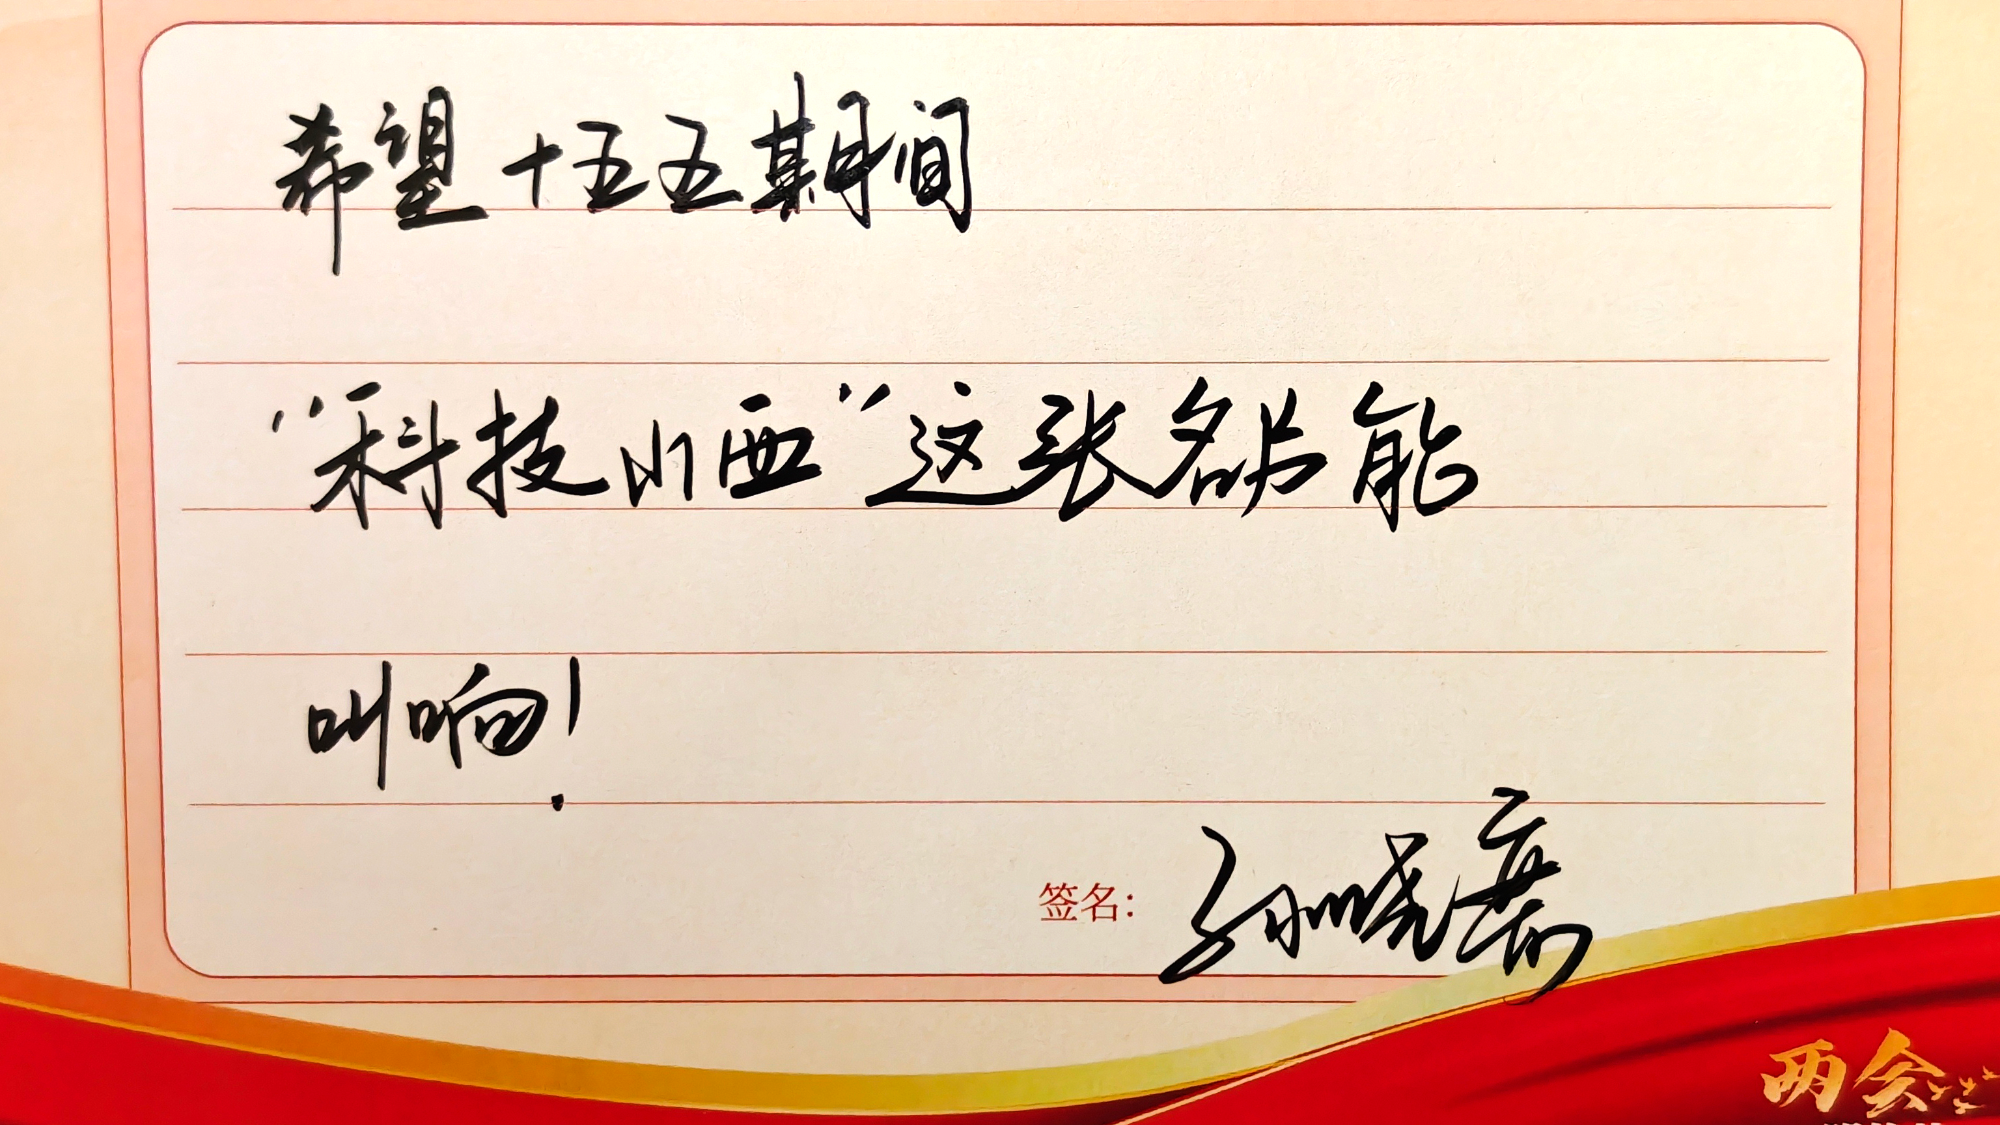 希望十五五期间
“科技山西”这张名片能
叫响!
签名: 孙晓
两会